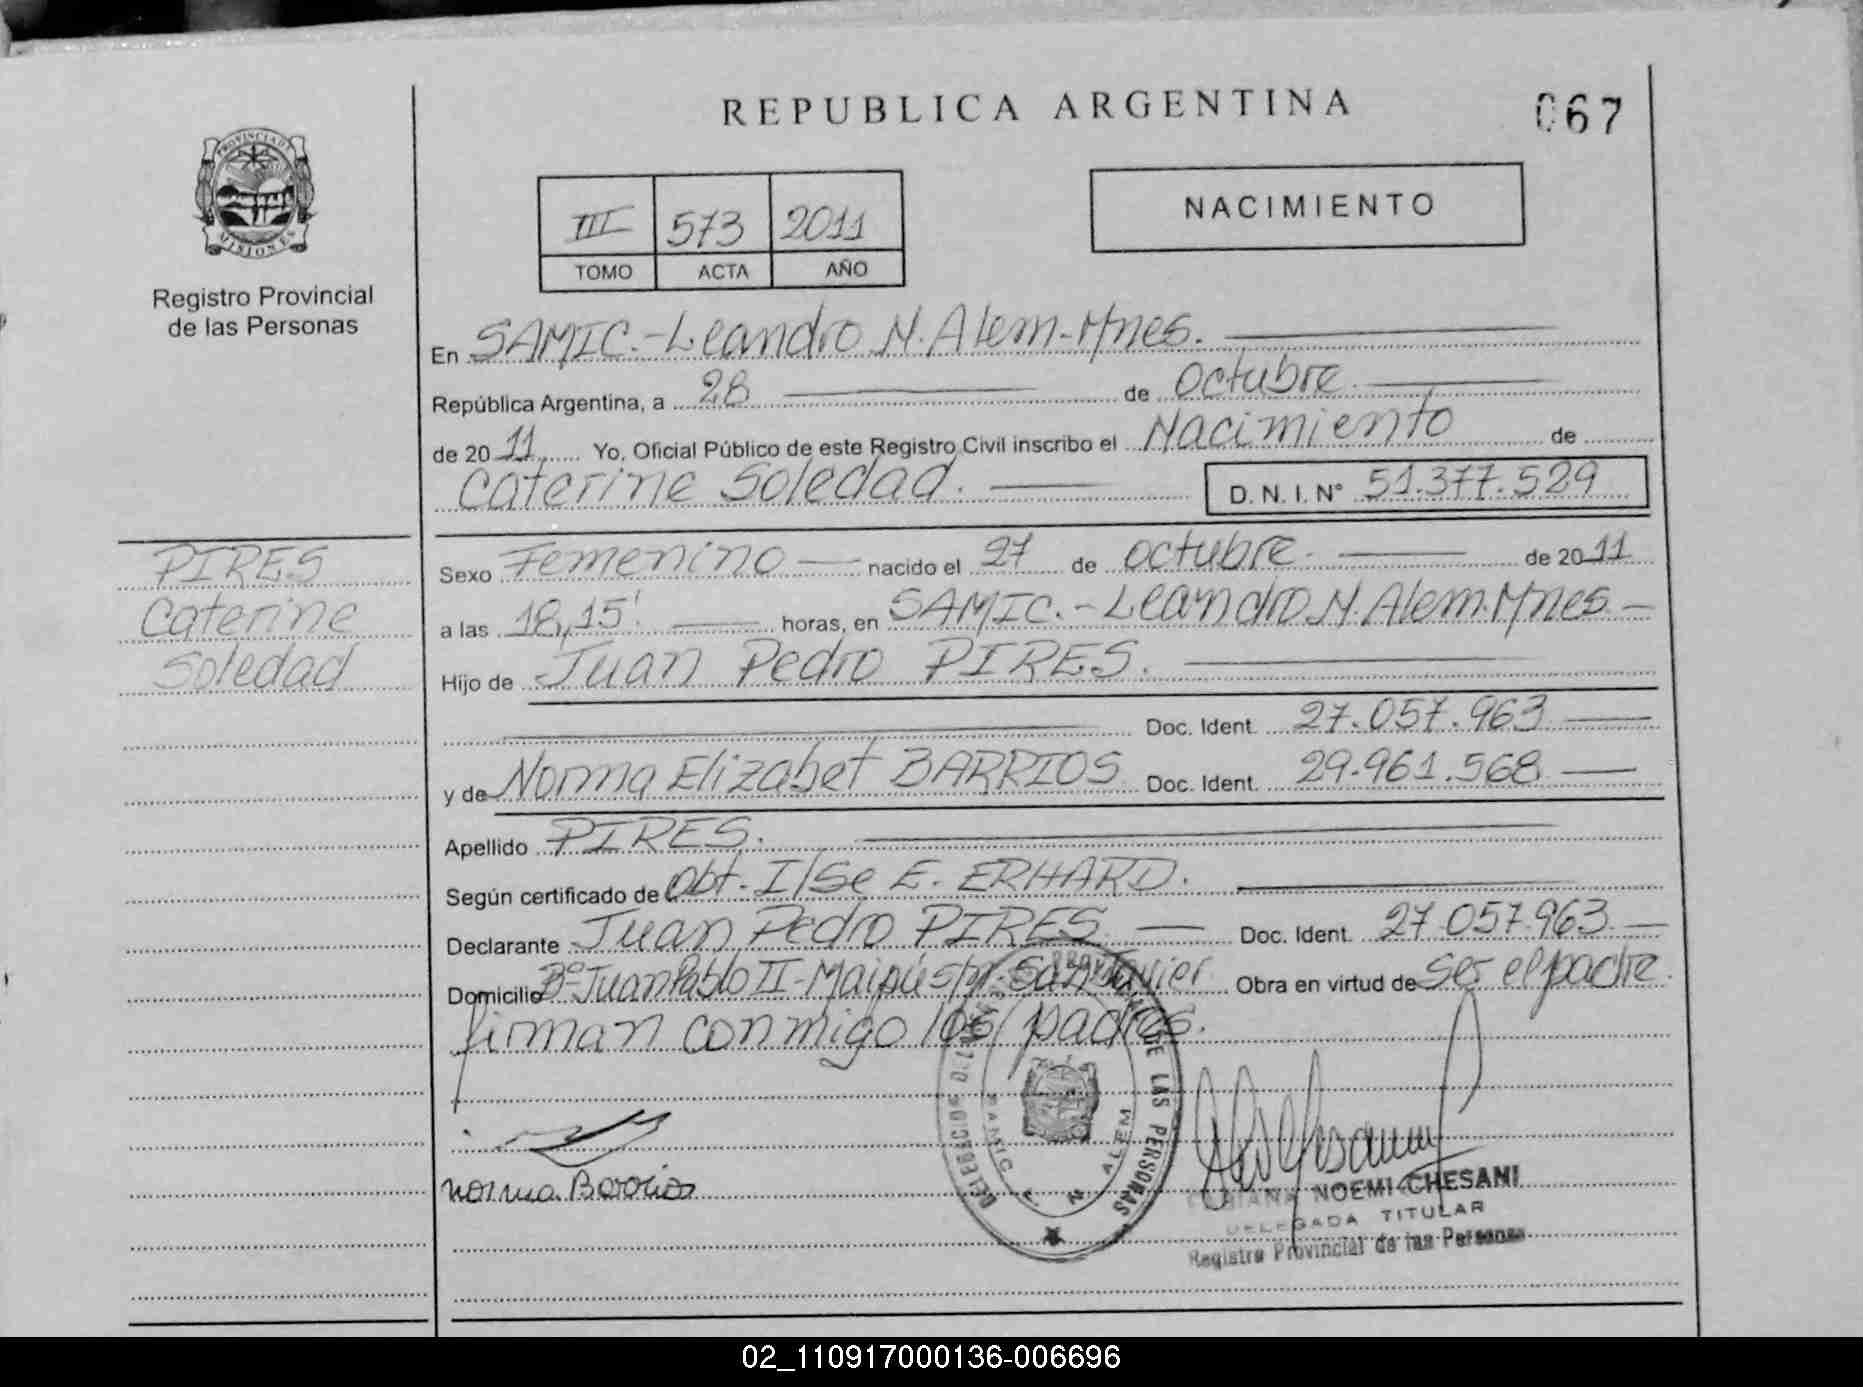 REPUBLICA ARGENTINA
067
PROVINCIA DE
MISIONES
Registro Provincial
de las Personas
III 573 2011
TOMO ACTA AÑO
NACIMIENTO
En SAMIC.-Leandro N. Alem-Mnes.
República Argentina, a 28 de octubre
de 20 11 Yo, Oficial Público de este Registro Civil inscribo el Nacimiento de
Caterine Soledad. D. N. I. N° 51.377.529
PIRES
Caterine
Soledad
Sexo Femenino nacido el 27 de octubre. de 20 11
a las 18,15' horas, en SAMIC.-Leandro N. Alem.Mnes
Hijo de Juan Pedro PIRES.
Doc. Ident. 27.057.963
y de Norma Elizabet BARRIOS Doc. Ident. 29.961.568
Apellido PIRES.
Según certificado de Obt. Ilse E. ERHARD.
Declarante Juan Pedro PIRES Doc. Ident. 27.057.963
Domicilio B° Juan Pablo II-Maipú s/nr. San Javier Obra en virtud de ser el padre.
firman conmigo los padres.
DE LAS PERSONAS
DELEGACION
SAMIC L. N. ALEM
norma Barrios
FABIANA NOEMI CHESANI
DELEGADA TITULAR
Registro Provincial de las Personas
02_110917000136-006696